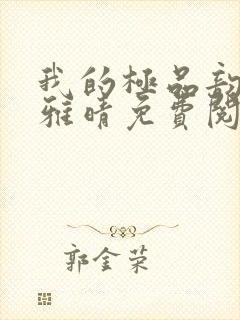 我的極品
雅晴免費閱
郭金荣